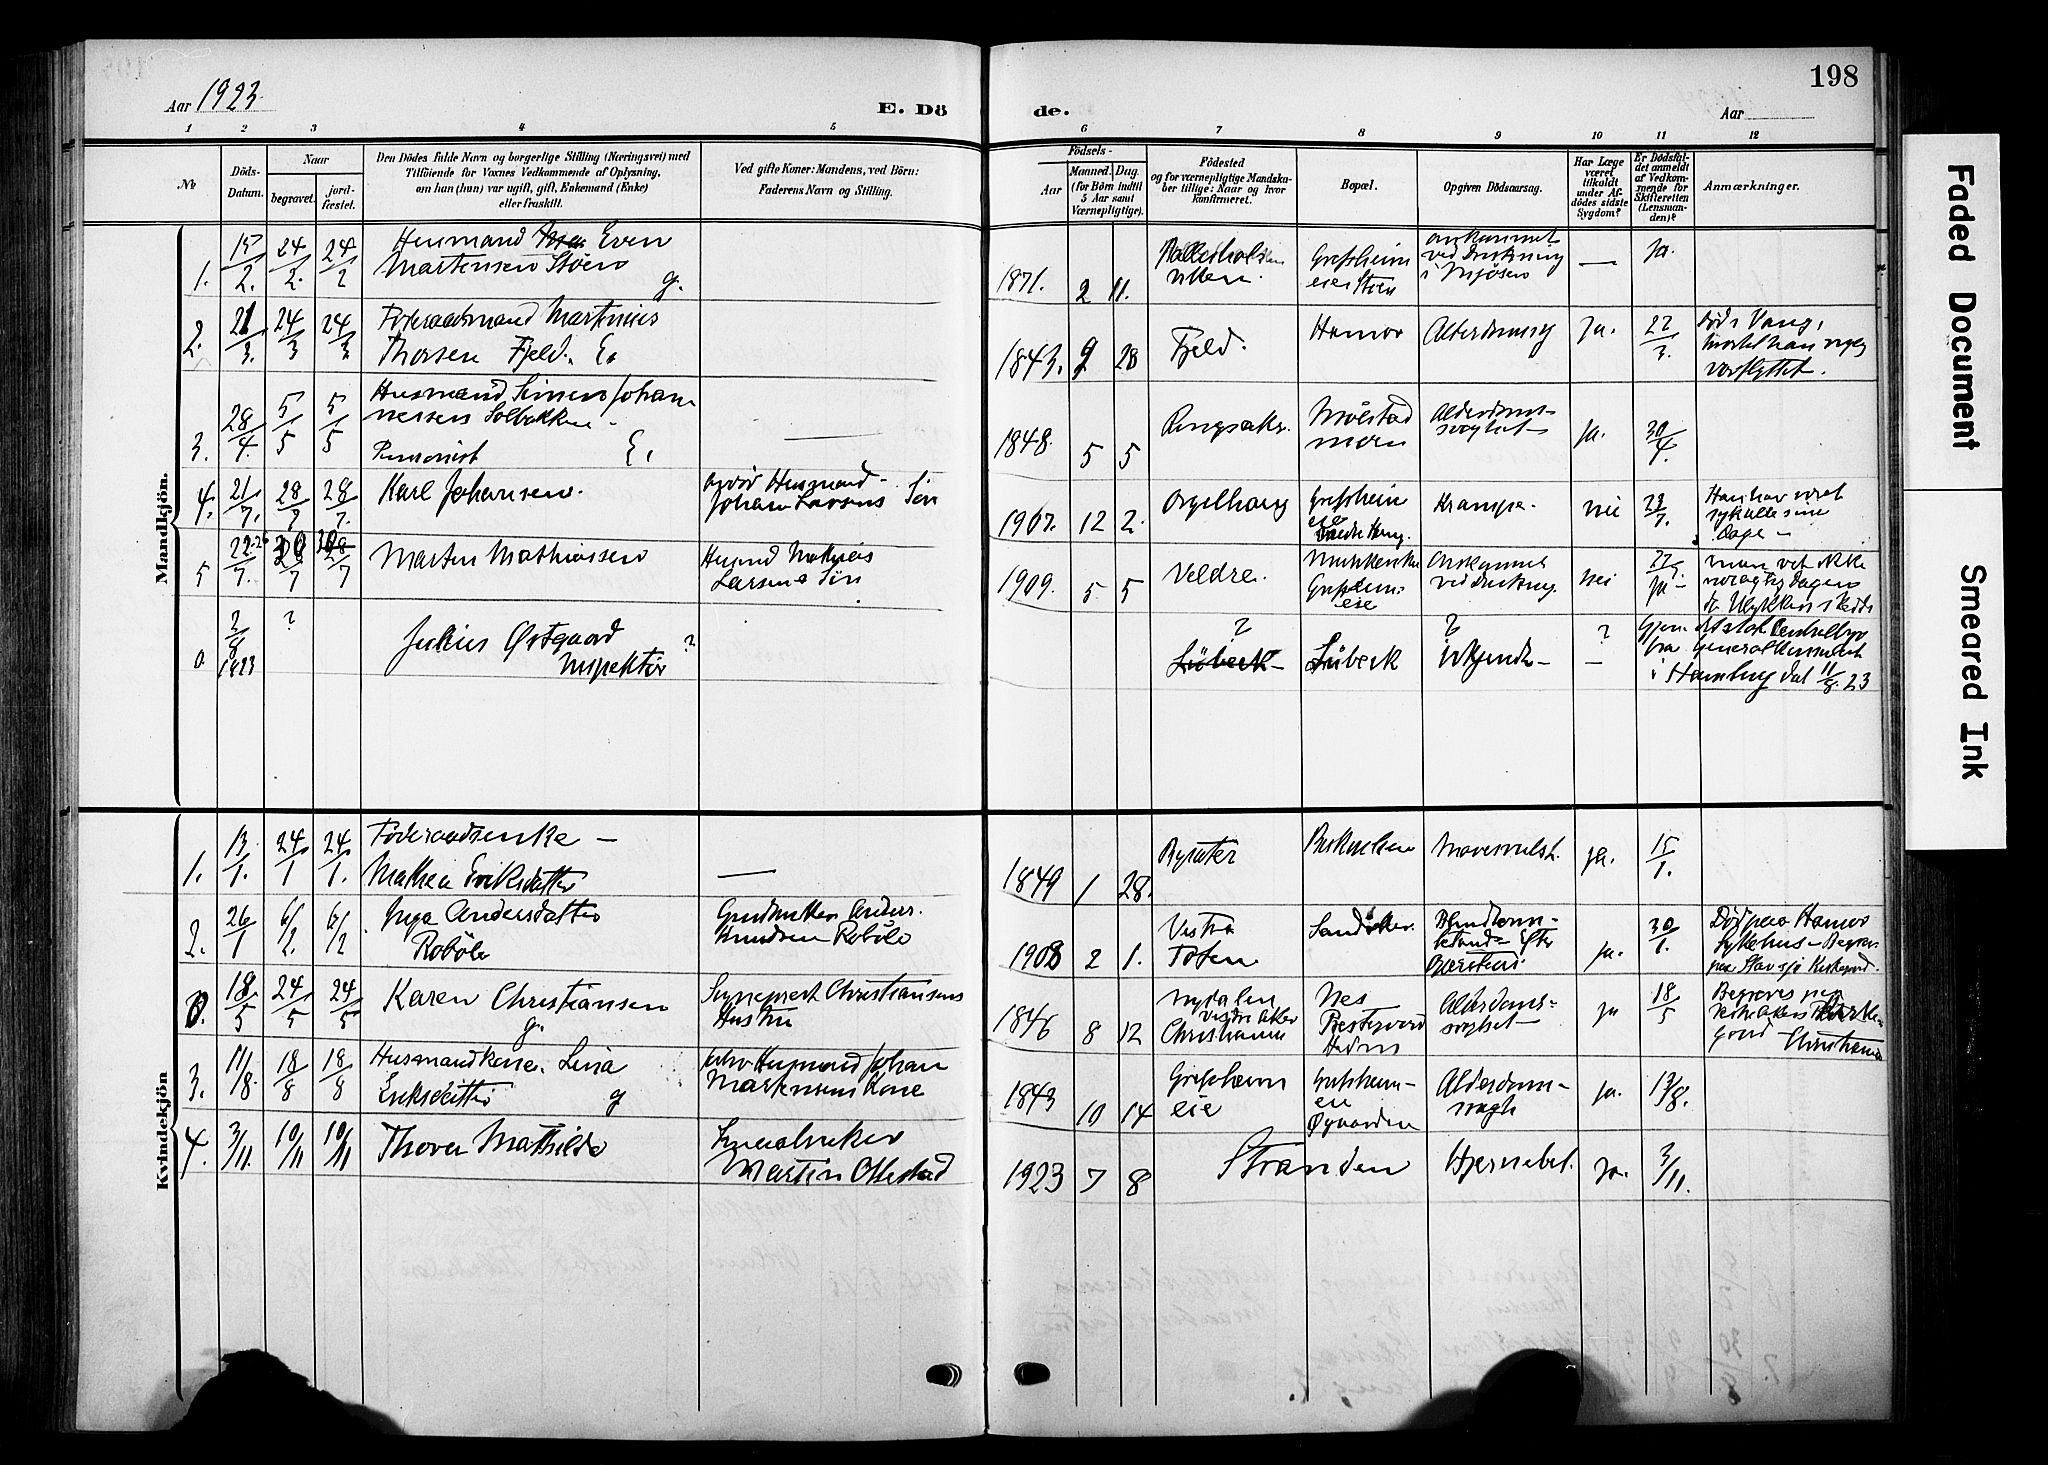 Aar 1923.
E. Dö
de.
Aar
198
1 2 3 4 5 6 7 8 9 10 11 12
No
Döds-Datum.
Naar
begravet.
jord-fæstet.
Den Dödes fulde Navn og borgerlige Stilling (Næringsvei) med
Tilföiende for Voxnes Vedkommende af Oplysning,
om han (hun) var ugift, gift, Enkemand (Enke)
eller fraskilt.
Ved gifte Koner: Mandens, ved Börn:
Faderens Navn og Stilling.
Födsels-
Aar
Maaned. Dag.
(for Börn indtil
5 Aar samt
Værnepligtige).
Födested
og for værnepligtige Mandska-
ber tillige: Naar og hvor
konfirmeret.
Bopæl.
Opgiven Dödsaarsag.
Har Læge
været
tilkaldt
under Af-
dödes sidste
Sygdom?
Er Dödsfal-
det anmeldt
af Vedkom-
mende for
Skifteretten
(Lensman-
den)?
Anmærkninger.
Mandkjön.
1. 15/2. 24/2. 24/2 Husmand Even
Martensen Stöen g.
1871. 2 11. Grefsheim
eie Stöen
omkommet
ved Drukning
i Mjösen
— ja.
2. 21/3. 24/3 24/3 Föderaadsmand Martinius
Thorsen Fjeld. E.
1843. 9 28 Fjeld. Hamar Alderdomssvag Ja. 22/3.
död i Vang,
3. 28/4. 5/5 5/5 Husmand Simen Johan-
nessen Solbakken
Pensionist E.
1848. 5 5 Ringsaker. Mölstad
moen
Alderdoms-
svaghet
ja. 30/4.
4. 21/7. 28/7 28/7. Karl Johansen.
Husmand
Johan Larsens Sön
1907. 12 2. Grefsheim
eie
Krampe. nei 23/7.
Han har været
syk alle sine
dage
5 22/7. 28/7 28/7 Martin Mathiassen
Husmd Mathias
Larsens Sön
1909. 5 5 Veldre. Grefsheim-
eie
Omkommet
ved Drukning.
nei ja
man vet ikke
nöiagtig dagen
da Ulykken skedde
0 2/8 1923 ? Julius Østgaard
Inspektör ?
? Lübeck Lübeck ? ? —
fra Generalkonsulat
i Hamburg dat 11/8. 23
Kvindekjön
1. 13/1. 24/1 24/1. Föderaadsenke —
Mathea Eriksdatter
—
1849 1 28. ja. 15/1.
2. 26/1 6/2. 6/2 Inga Andersdatter
Roböle
Gaardbruker Anders
Knudsen Roböle
1908 2 1. Vestre
Toten
ja. 30/1.
Död paa Hamar
Sykehus - Begrav.
paa Stavsjö Kirkegaard.
0. 18/5 24/5 24/5 Karen Christiansen
g.
Sogneprest Christiansens
Hustru
1846 8 12 Nydalen
Vestre Aker
Christiania
Nes
Prestegaard
Hedm
Alderdoms-
svaghet
ja 18/5
Begraves paa
Vestre Akers Kirke-
gaard Christiania
3. 11/8. 18/8 18/8 Husmandkone Lina
Eriksdatter g
Husmand Johan
Martensens Kone
1843 10 14 Grefsheim
eie
Grefsheim-
eie
Øgaarden
Alderdoms-
svagh
ja. 13/8.
4. 3/11. 10/11 10/11 Thora Mathilde
Smaabruker
Martin Ottestad
1923 7 8 Stranden Hjernebet. ja. 3/11.
Faded Document
Smeared Ink